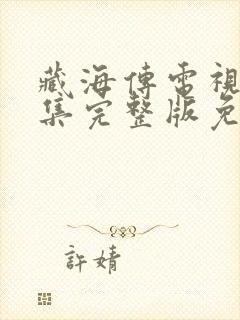 藏海傳電視
集完整版免
許婧